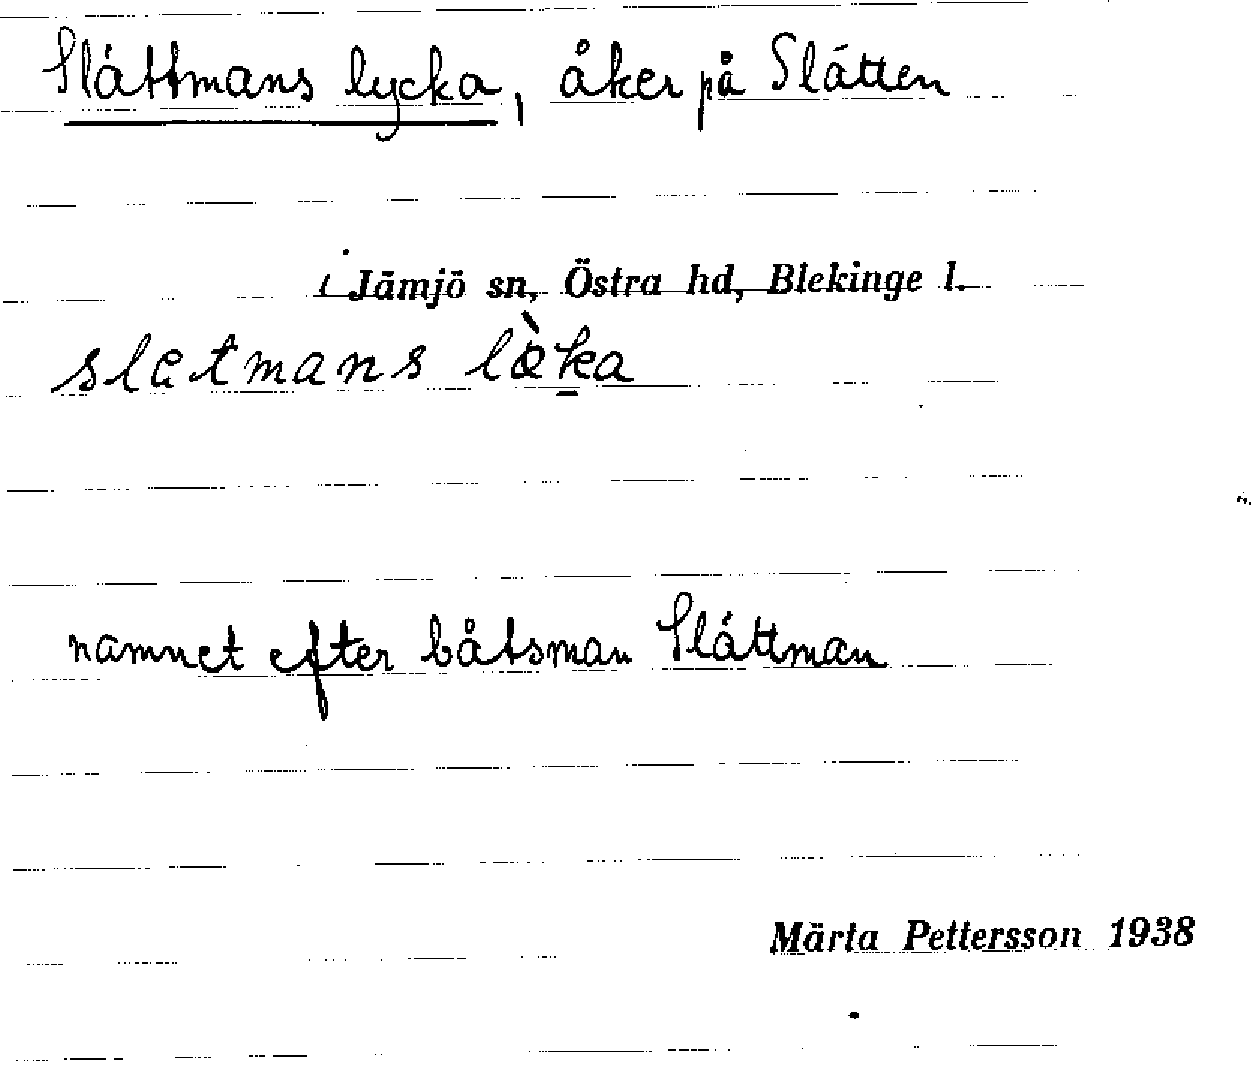 Slättmans lycka, åker på Slätten
i Jämjö sn, Östra hd, Blekinge l.
namnet efter båtsman Slättman
Märta Pettersson 1938